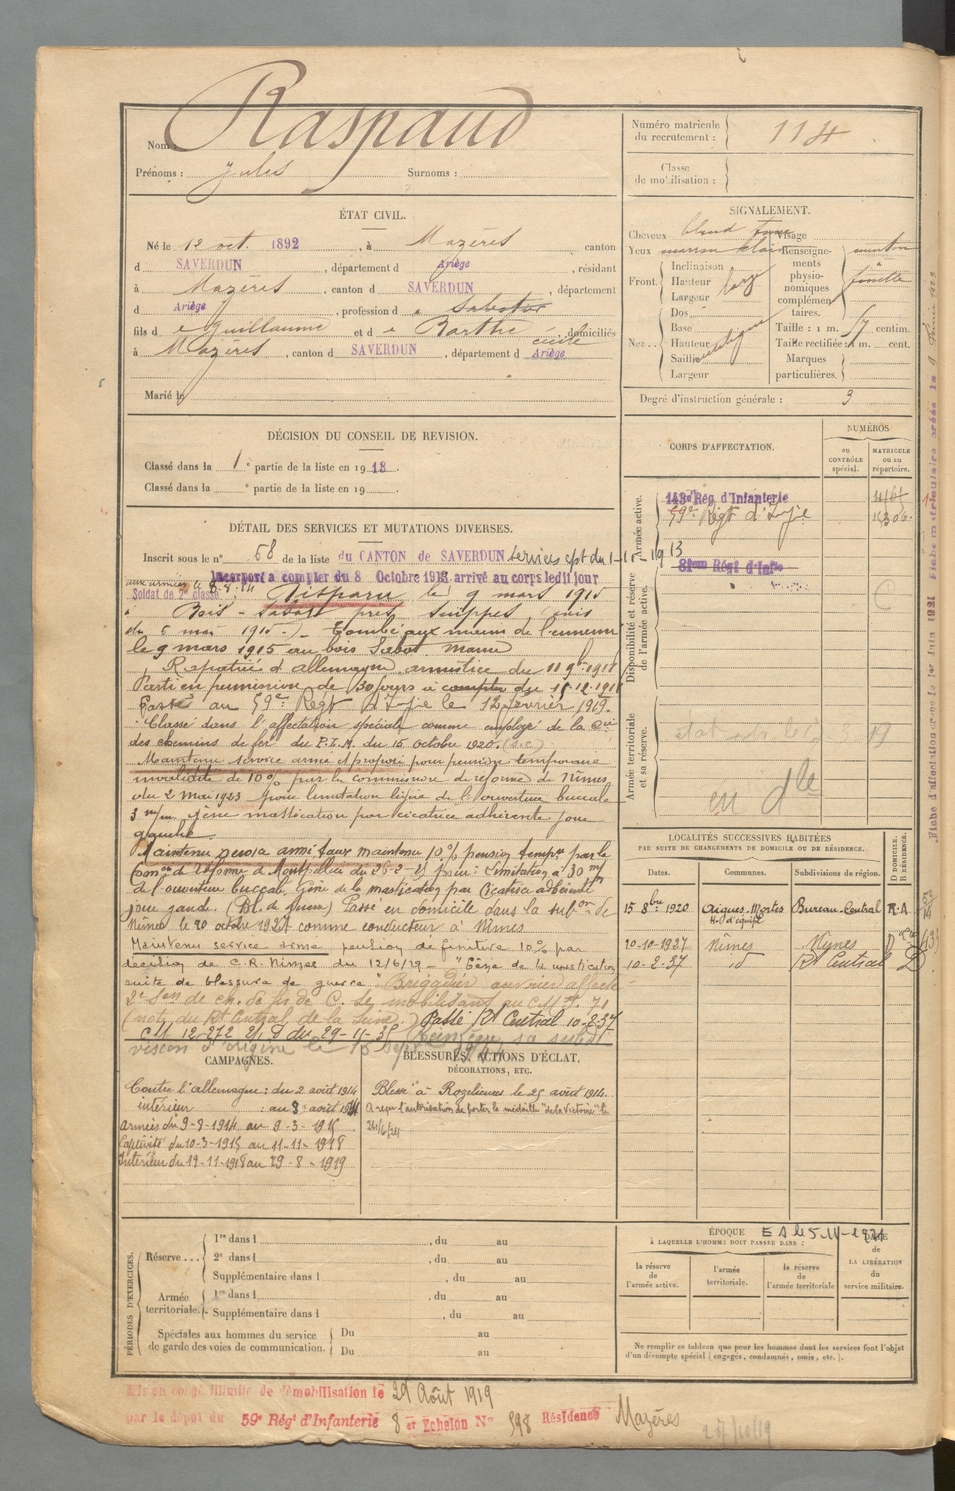 Nom Raspaud
Prénoms : Jules Surnoms :
Numéro matricule du recrutement : 114
Classe de mobilisation :
ÉTAT CIVIL.
Né le 12 oct. 1892, à Mazères canton
d SAVERDUN, département d Ariège, résidant
à Mazères, canton d SAVERDUN, département
d Ariège, profession d
fils de Guillaume et de Barthe Cécile, domiciliés
à Mazères, canton d SAVERDUN, département d Ariège
Marié le
SIGNALEMENT.
Cheveux blond Visage
Yeux marron clair Renseignements physionomiques complémentaires. menton à fossette
Front. Inclinaison Hauteur Largeur
Nez.. Dos Base Hauteur Saillie Largeur
Taille : 1 m. 57 centim.
Taille rectifiée : 1 m. cent.
Marques particulières.
Degré d'instruction générale : 3
DÉCISION DU CONSEIL DE REVISION.
Classé dans la 1e partie de la liste en 1913.
Classé dans la e partie de la liste en 19
CORPS D'AFFECTATION.
NUMÉROS
au CONTRÔLE spécial.
MATRICULE ou au répertoire.
Armée active.
143e Rég d'Infanterie
59e Régt d'Infie
81eme Régt d'Infie
Disponibilité et réserve de l'armée active.
Armée territoriale et sa réserve.
en dle
DÉTAIL DES SERVICES ET MUTATIONS DIVERSES.
Inscrit sous le n° 58 de la liste du CANTON de SAVERDUN services cpt du 1-10-1913
Incorporé a compter du 8 Octobre 1913 arrivé au corps ledit jour
aux armées le 8.8.14
Soldat de 2e classe. Disparu le 9 mars 1915
Bois-Sabot près Suippes avis
du 5 mai 1915 -/- Tombé aux mains de l'ennemi
le 9 mars 1915 au bois Sabot Marne
Rapatrié d'allemagne armistice du 11 9bre 1918
Parti en permission de 30 jours a compter du 15-12-1918
Passé au 59e Régt d'Infie le 12 février 1919.
Classé dans l'affectation spéciale comme employé de la Cie
des chemins de fer du P.L.M. du 15 octobre 1920.
Maintenu service armé et proposé pour pension temporaire
invalidité de 10% par la commission de réforme de Nîmes
du 2 mai 1923 pour limitation légère de l'ouverture buccale
3 m/m gêne mastication par cicatrice adhérente joue
gauche.
Maintenu service armé taux maintenu 10% pension tempre par la
Comon de réforme d Montpellier du 26-2-25 pour : Limitation à 30 m/m
de l'ouverture buccale. Gêne de la mastication par Cicatrice adhérente
joue gauche. (Bl. de guerre) Passé en domicile dans la subon de
Nîmes le 20 octobre 1927 comme conducteur à Nîmes
Maintenu service armé pension définitive 10% par
décision de C.R. Nîmes du 12/6/29 - "Gêne de la mastication
suite de blessure de guerre" Brigadier ouvrier affecté
2e Son de ch. de fer de C. Sy mobilisant au CM F. 71
(note du Rt Central de la Seine) Passé Rt Central 10-2-37
CM 12-272 du 29-11-35
LOCALITÉS SUCCESSIVES HABITÉES
PAR SUITE DE CHANGEMENTS DE DOMICILE OU DE RÉSIDENCE.
Dates. Communes. Subdivisions de région. D. DOMICILE. R. RÉSIDENCE.
15 8bre 1920 Aigues-Mortes Bureau-Central R.A
20-10-1927 Nîmes Nîmes D
10-2-37 d Rt Central D
CAMPAGNES.
Contre l'allemagne : du 2 août 1914
intérieur : au 8 août 1914
armées du 9-8-1914 au 9-3-1915
Captivité du 10-3-1915 au 11-11-1918
Intérieur du 12-11-1918 au 29-8-1919
BLESSURES, ACTIONS D'ÉCLAT, DÉCORATIONS, ETC.
Blessé à Rozelieures le 25 août 1914.
A reçu l'autorisation de porter la médaille "de la Victoire" le
24/6/24
PÉRIODES D'EXERCICES.
Réserve... 1re dans l , du au
2e dans l , du au
Supplémentaire dans l , du au
Armée territoriale. 1re dans l , du au
Supplémentaire dans l , du au
Spéciales aux hommes du service de garde des voies de communication. Du au
Du au
ÉPOQUE
À LAQUELLE L'HOMME DOIT PASSER DANS :
la réserve de l'armée active.
l'armée territoriale.
la réserve de l'armée territoriale
DATE de LA LIBÉRATION du service militaire.
Ne remplir ce tableau que pour les hommes dont les services font l'objet
d'un décompte spécial (engagés, condamnés, omis, etc.).
Mis en congé illimité de démobilisation le 29 Août 1919
par le dépôt du 59e Régt d'Infanterie 8 et Echelon N° 598 Résidence Mazères